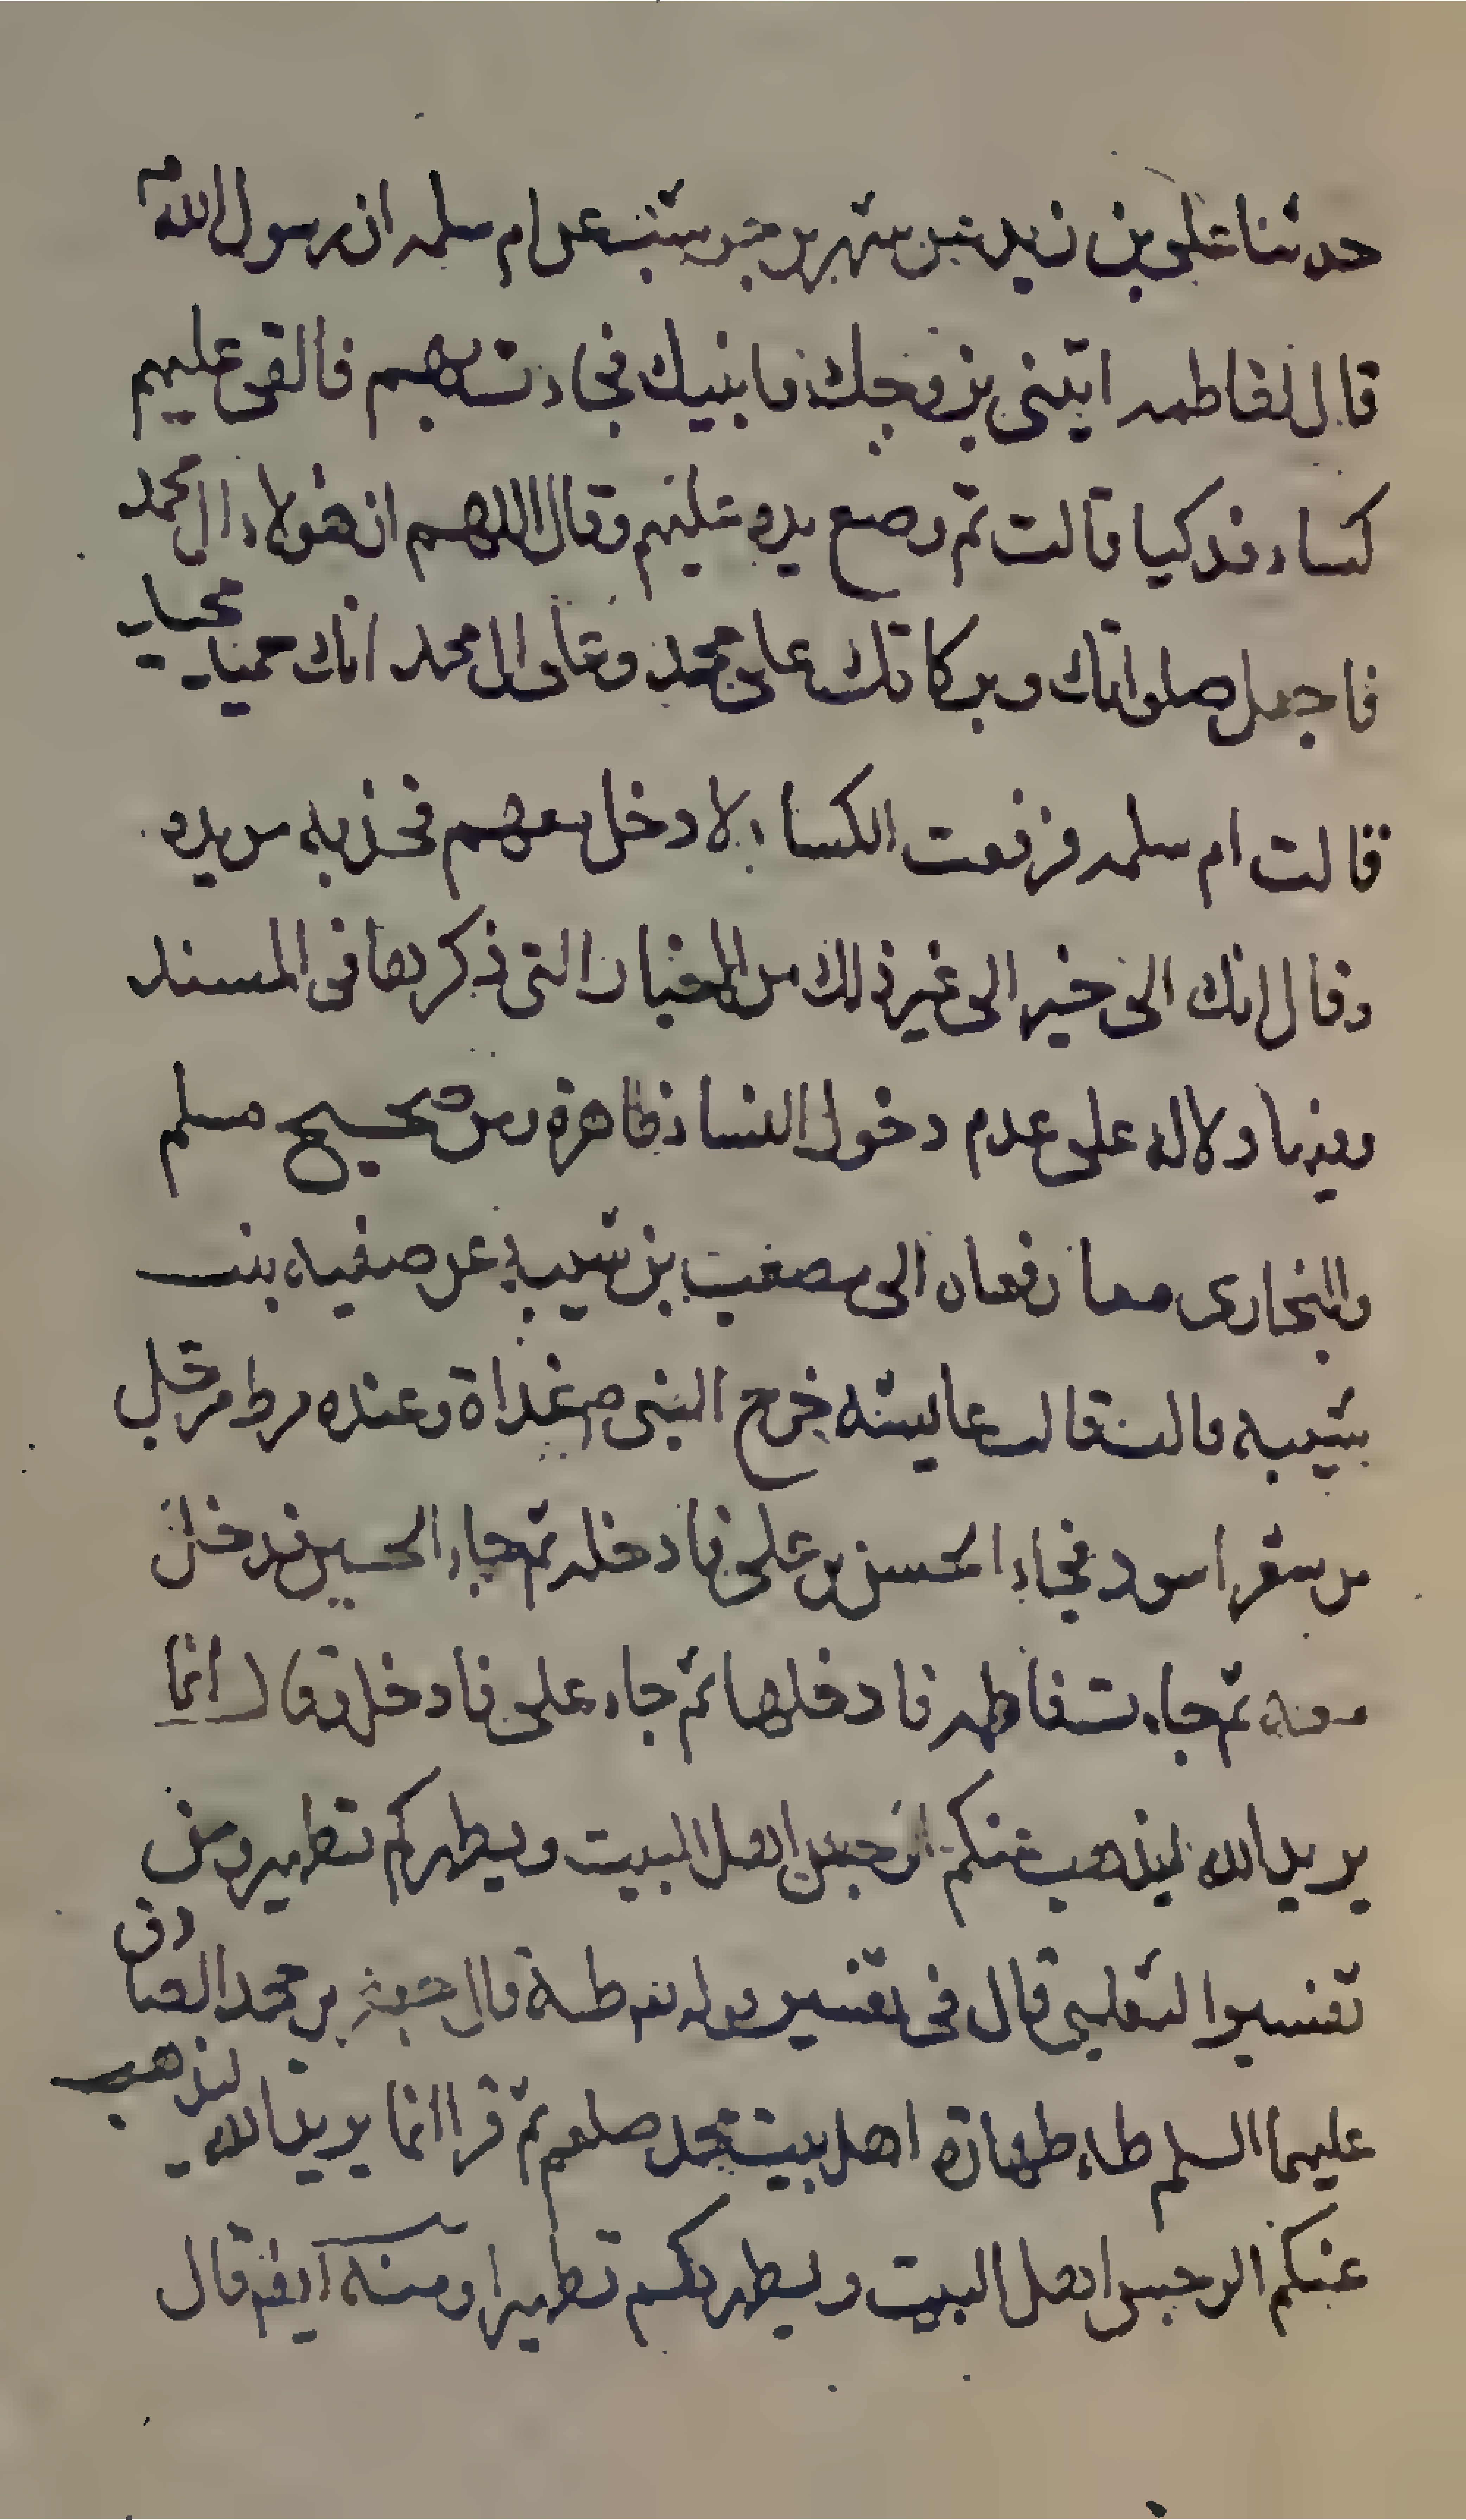 حدثنا علی بن زید عن شهر بن حوشب عن ام سلمه ان رسول الله ص
قال لفاطمه ایتنی بزوجک وابنیک فجاءت بهم فالقی علیهم
کساء فدکیا قالت ثم وضع یده علیهم وقال اللهم ان هولاء ال محمد
فاجعل صلواتک وبرکاتک علی محمد وعلی ال محمد انک حمید مجید
قالت ام سلمه فرفعت الکساء لادخل معهم فجذبه من یده
وقال انک الی خیر الی غیر ذلک من الاخبار التی ذکرها فی المسند
وفیها دلاله علی عدم دخول النساء ظاهرة ومن صحیح مسلم
والبخاری معا رفعاه الی مصعب بن شیبه عن صفیه بنت
شیبه قالت قالت عایشه خرج النبی ص غداة وعنده مرط مرحل
من شعر اسود فجاء الحسن بن علی فادخله ثم جاء الحسین فدخل
معه ثم جاءت فاطمه فادخلها ثم جاء علی فادخله وقال انما
یرید الله لیذهب عنکم الرجس اهل البیت ویطهرکم تطهیرا ومن
تفسیر الثعلبی قال فی تفسیر قوله تعر طه قال جعفر بن محمد الصادق
علیهما السلم طاء طهارة اهل بیت محمد صلعم ثم قرا انما یرید الله لیذهب
عنکم الرجس اهل البیت ویطهرکم تطهیرا ومنه ایضا قال